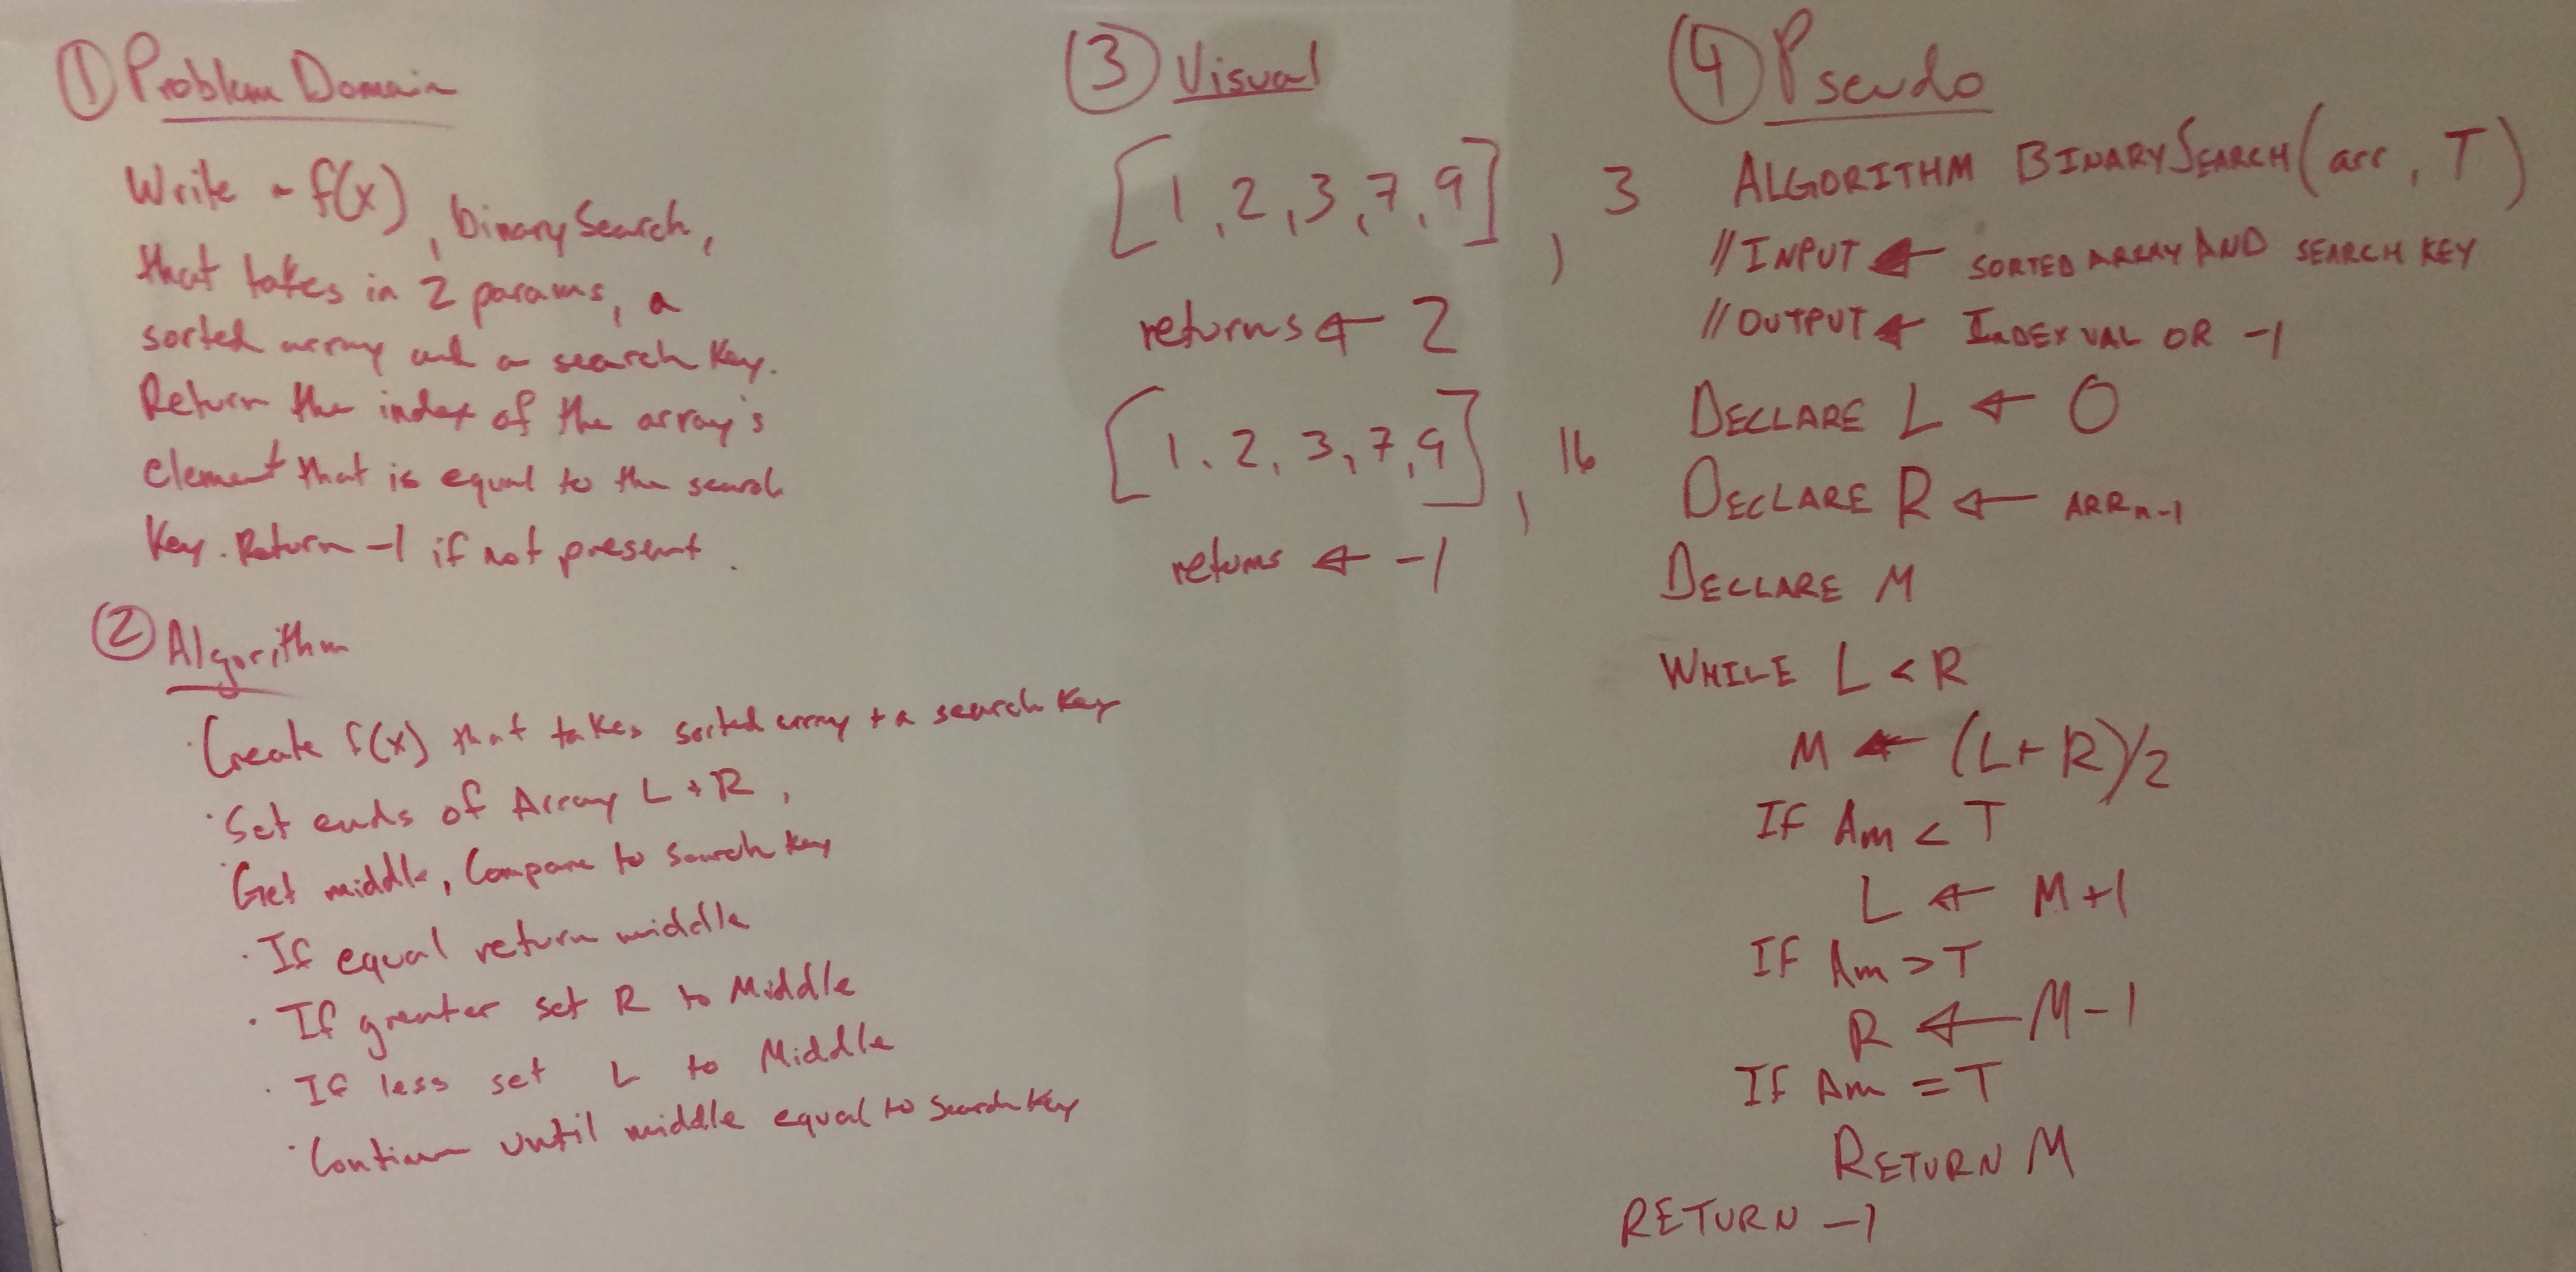 ① Problem Domain
Write a f(x), binarySearch,
that takes in 2 params, a
sorted array and a search key.
Return the index of the array's
element that is equal to the search
key. Return -1 if not present.
② Algorithm
· Create f(x) that takes sorted array + a search key
· Set ends of Array L + R,
· Get middle, Compare to search key
· If equal return middle
· If greater set R to Middle
· If less set L to Middle
· Continue until middle equal to search key
③ Visual
[1, 2, 3, 7, 9], 3
returns ← 2
[1, 2, 3, 7, 9], 16
returns ← -1
④ Pseudo
ALGORITHM BINARYSEARCH(arr, T)
// INPUT ← SORTED ARRAY AND SEARCH KEY
// OUTPUT ← INDEX VAL OR -1
DECLARE L ← 0
DECLARE R ← ARRn-1
DECLARE M
WHILE L < R
M ← (L+R)/2
IF Am < T
L ← M+1
IF Am > T
R ← M-1
IF Am = T
RETURN M
RETURN -1